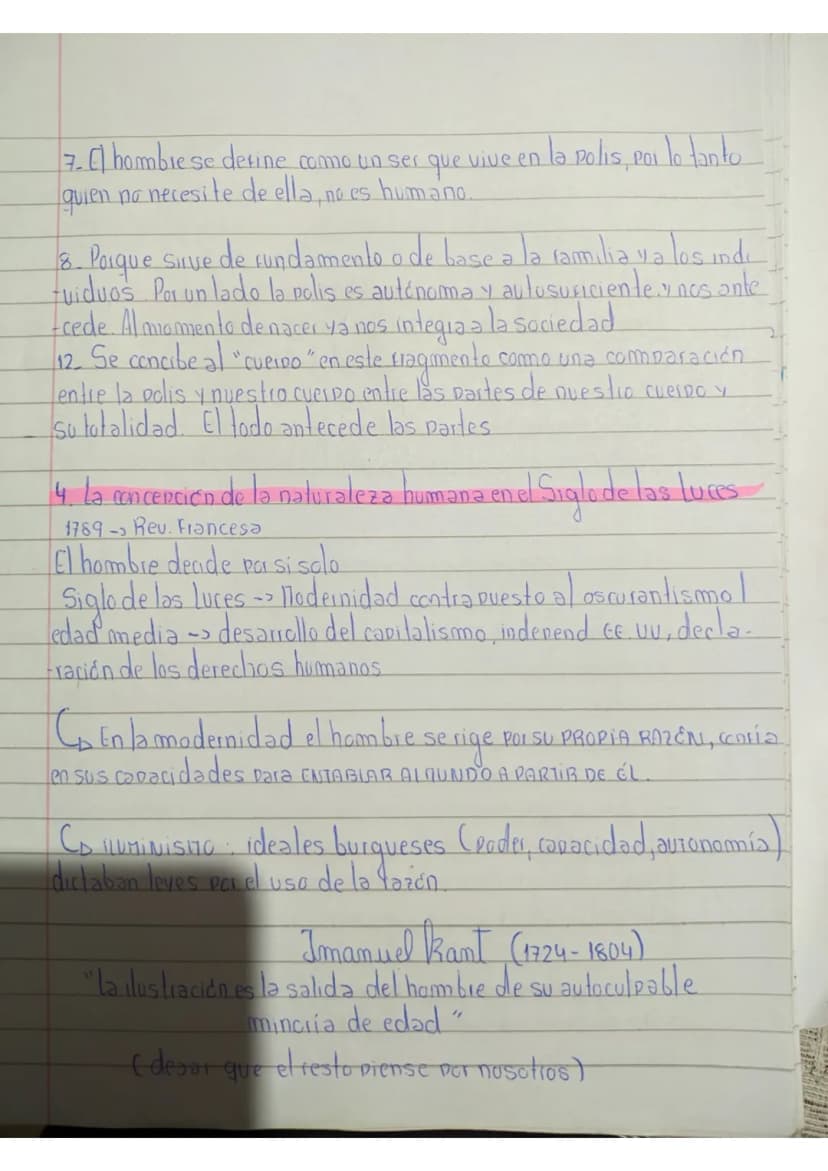 7. El hombre se define como un ser que vive en la polis, por lo tanto
quien no necesite de ella, no es humano.
8. Porque sirve de fundamento o de base a la familia y a los indi
viduos. Por un lado la polis es autónoma y autosuficiente. y nos ante
-cede. Al momento de nacer ya nos integra a la sociedad
12. Se concibe al "cuerpo" en este fragmento como una comparación
entre la polis y nuestro cuerpo entre las partes de nuestro cuerpo y
su totalidad. El todo antecede las partes
4. La concepción de la naturaleza humana en el Siglo de las Luces
1789 -> Rev. Francesa
El hombre decide por si solo
Siglo de las Luces -> Modernidad contrapuesto al oscurantismo /
edad media -> desarrollo del capitalismo, independ EE.UU, decla-
-ración de los derechos humanos
↳ En la modernidad el hombre se rige POR SU PROPIA RAZÓN, confía
en sus capacidades para ENTABLAR AL MUNDO A PARTIR DE ÉL.
↳ ILUMINISMO: ideales burgueses (poder, capacidad, autonomía)
dictaban leyes por el uso de la razón.
Imanuel Kant (1724-1804)
"la ilustración es la salida del hombre de su autoculpable
minoría de edad"
(dejar que el resto piense por nosotros)